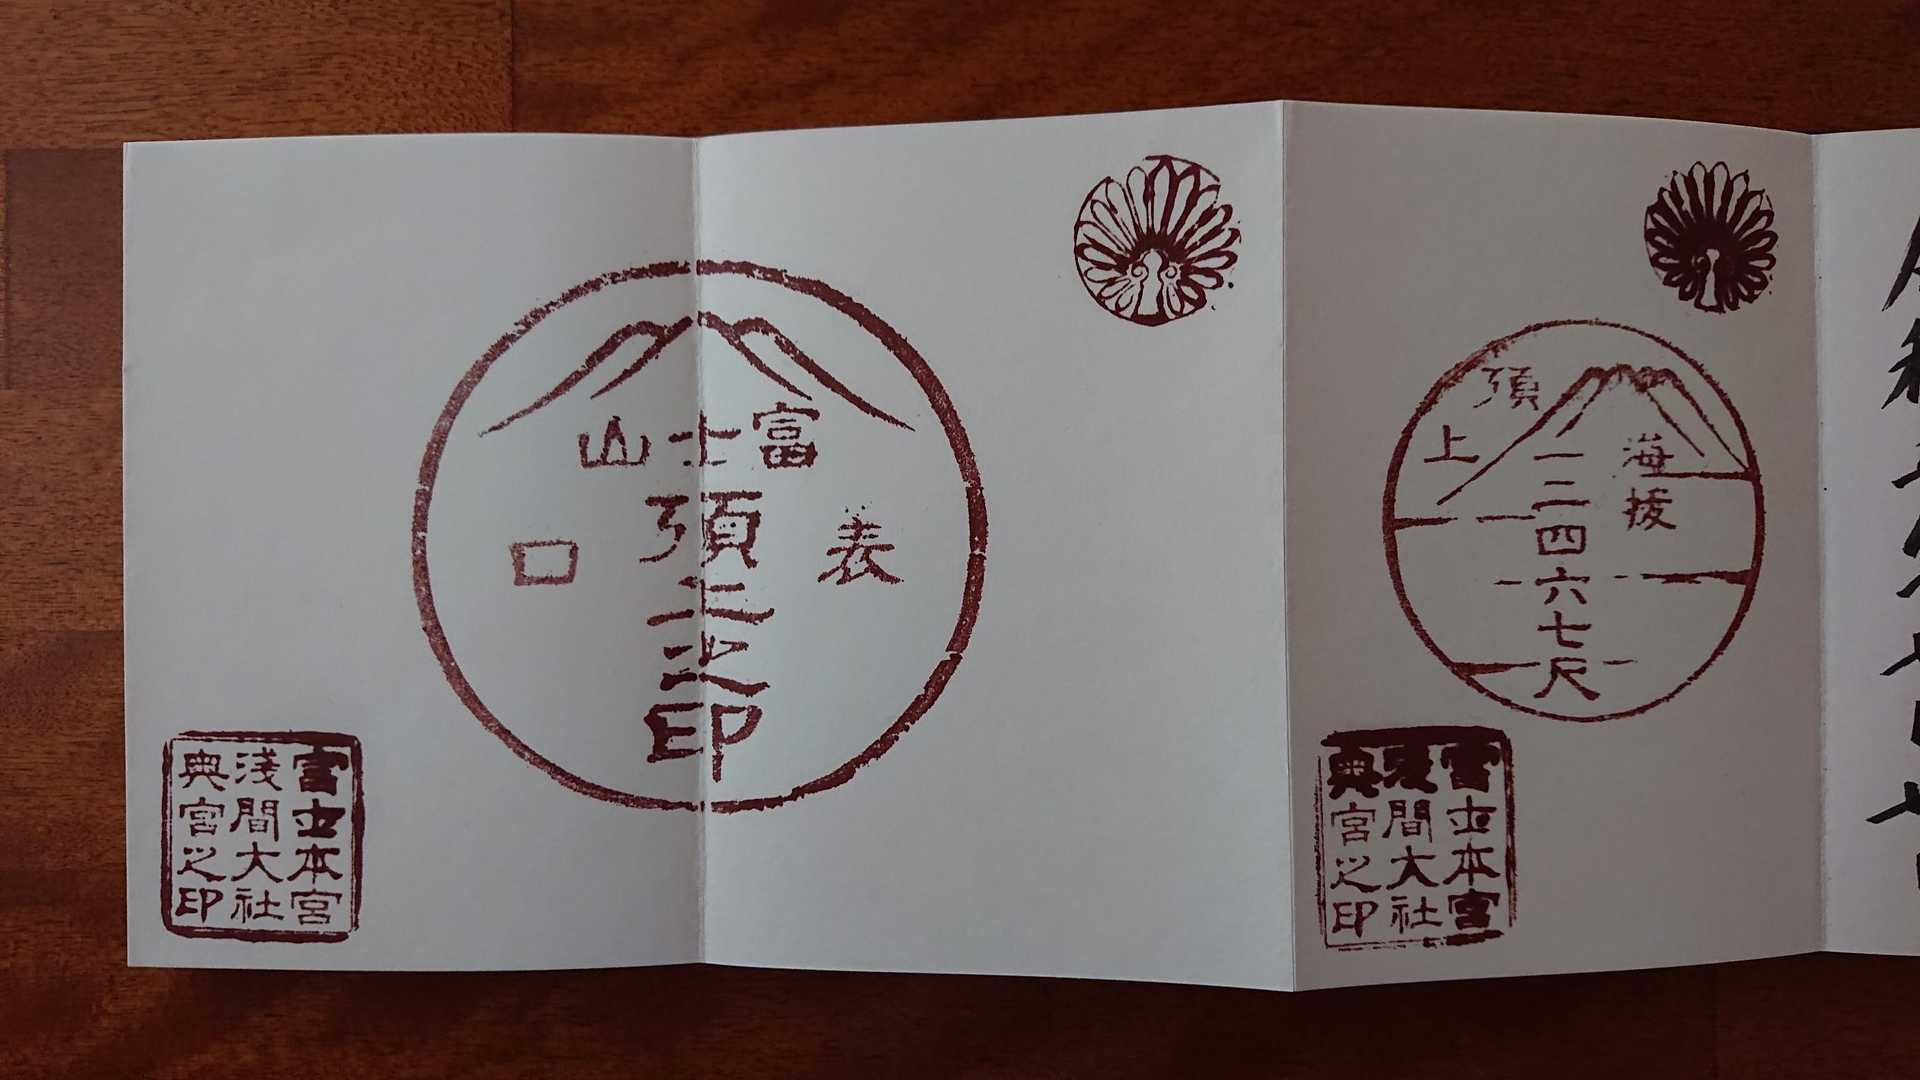 頂上
海抜
一二四六七尺
富士本宮
淺間大社
奥宮之印
富士山
頂上之印
表口
富士本宮
淺間大社
奥宮之印